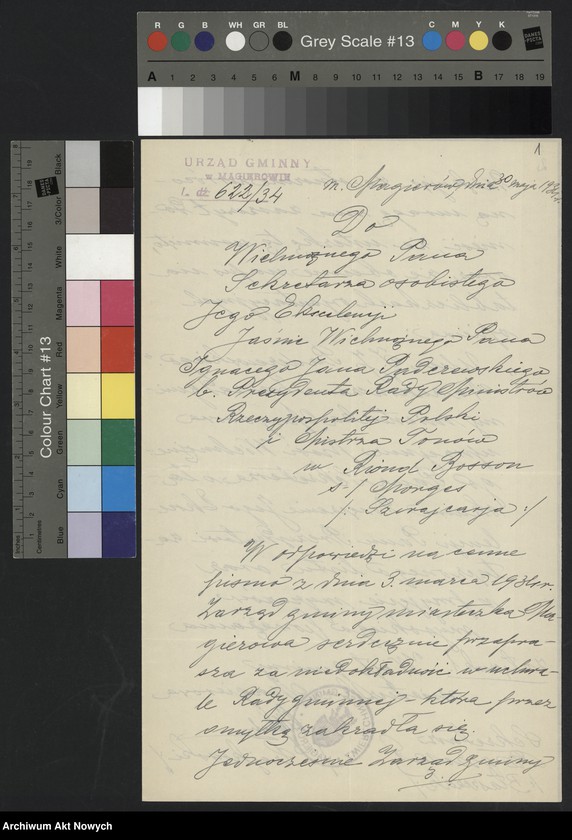 R G B WH GR BL Grey Scale #13 C M Y K
A 1 2 3 4 5 6 M 8 9 10 11 12 13 14 15 B 17 18 19
DANES PICTA
Colour Chart #13
Black
3/Color
White
Magenta
Red
Yellow
Green
Cyan
Blue
Inches
Centimetres
1
URZĄD GMINNY
w MAGIEROWIE
L. 622/34
m. Magierów, dnia 30 maja
Do
Wielmożnego Pana
Sekretarza osobistego
Jego Ekscelencji
Jaśnie Wielmożnego Pana
Ignacego Jana Paderewskiego
b. Prezydenta Rady Ministrów
Rzeczypospolitej Polski
i Mistrza Tonów
w Riond Bosson
s./ Morges
/: Szwajcarja :/
W odpowiedzi na cenne
pismo z dnia 3. marca 1934 r.
Zarząd gminy miasteczka Ma-
gierowa serdecznie przepra-
sza za niedokładność w uchwa-
le Rady gminnej – która przez
omyłkę zakradła się.
Jednocześnie Zarząd gminy
Archiwum Akt Nowych